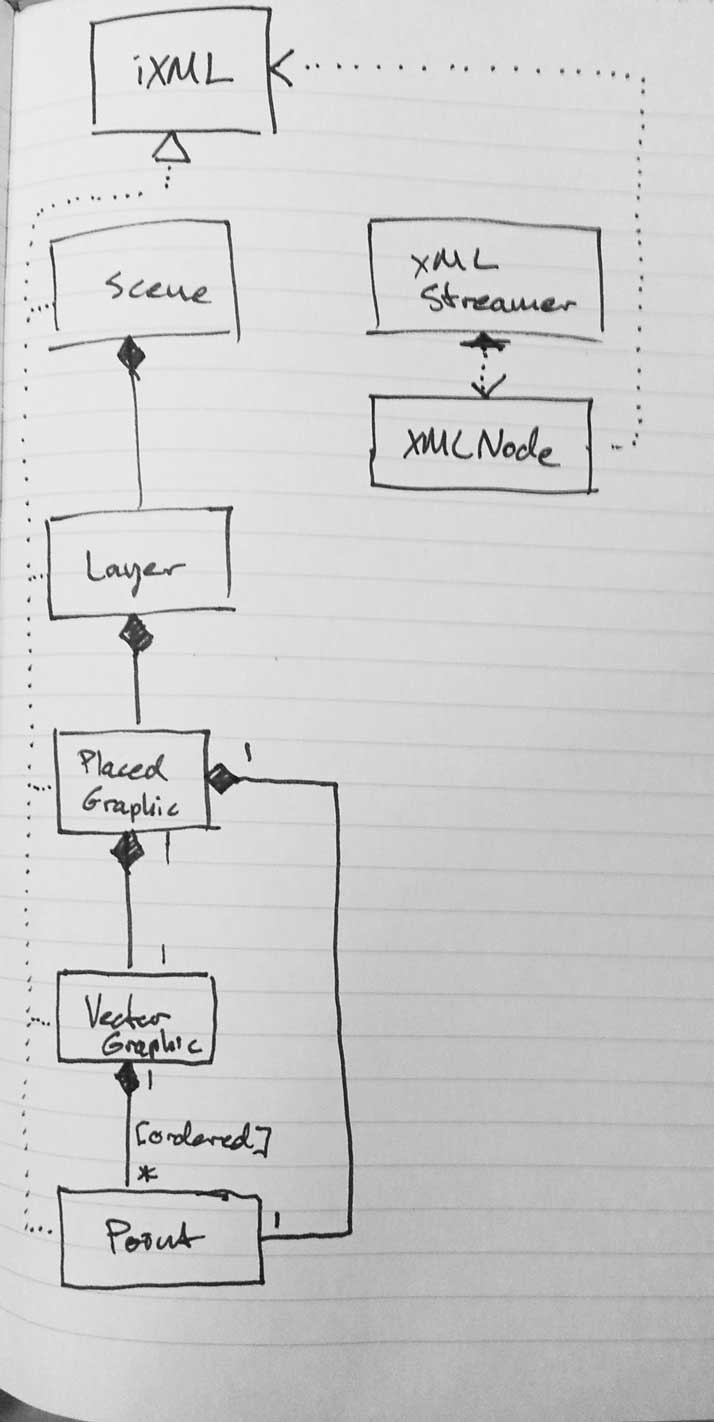 iXML
Scene
XML
Streamer
XMLNode
Layer
Placed
Graphic
1
1
1
Vector
Graphic
1
[ordered]
*
Point
1